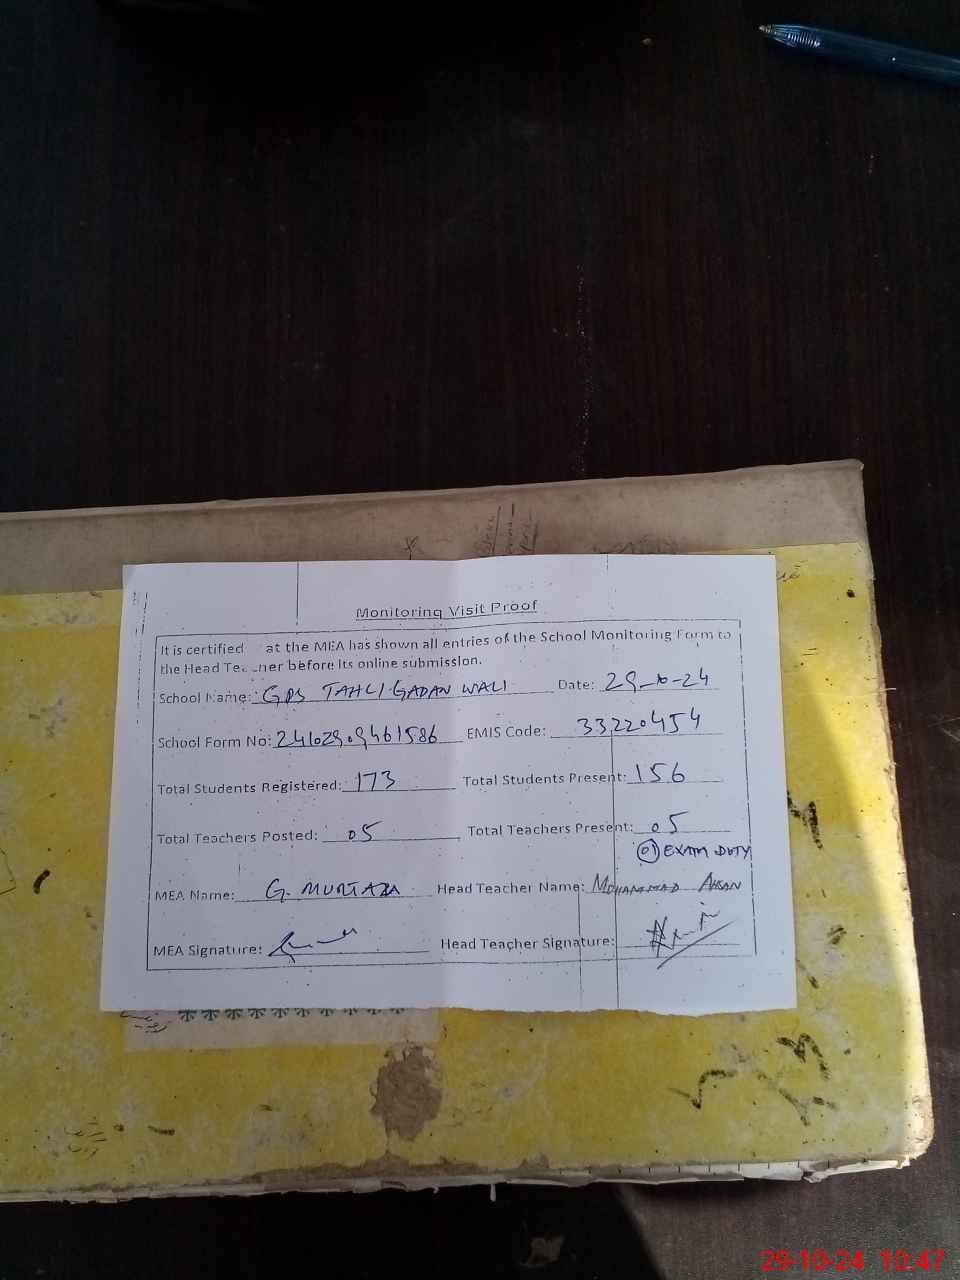 Monitoring Visit Proof
It is certified at the MEA has shown all entries of the School Monitoring Form to
the Head Teacher before its online submission.
School Name: GPS TAHLI GADAN WALI Date: 29-10-24
School Form No: EMIS Code: 33220454
Total Students Registered: 173 Total Students Present: 156
Total Teachers Posted: 05 Total Teachers Present: 05
01 EXAM DUTY
MEA Name: G. MURTAZA Head Teacher Name: MOHAMMAD AHSAN
MEA Signature: Head Teacher Signature:
29-10-24 10:47